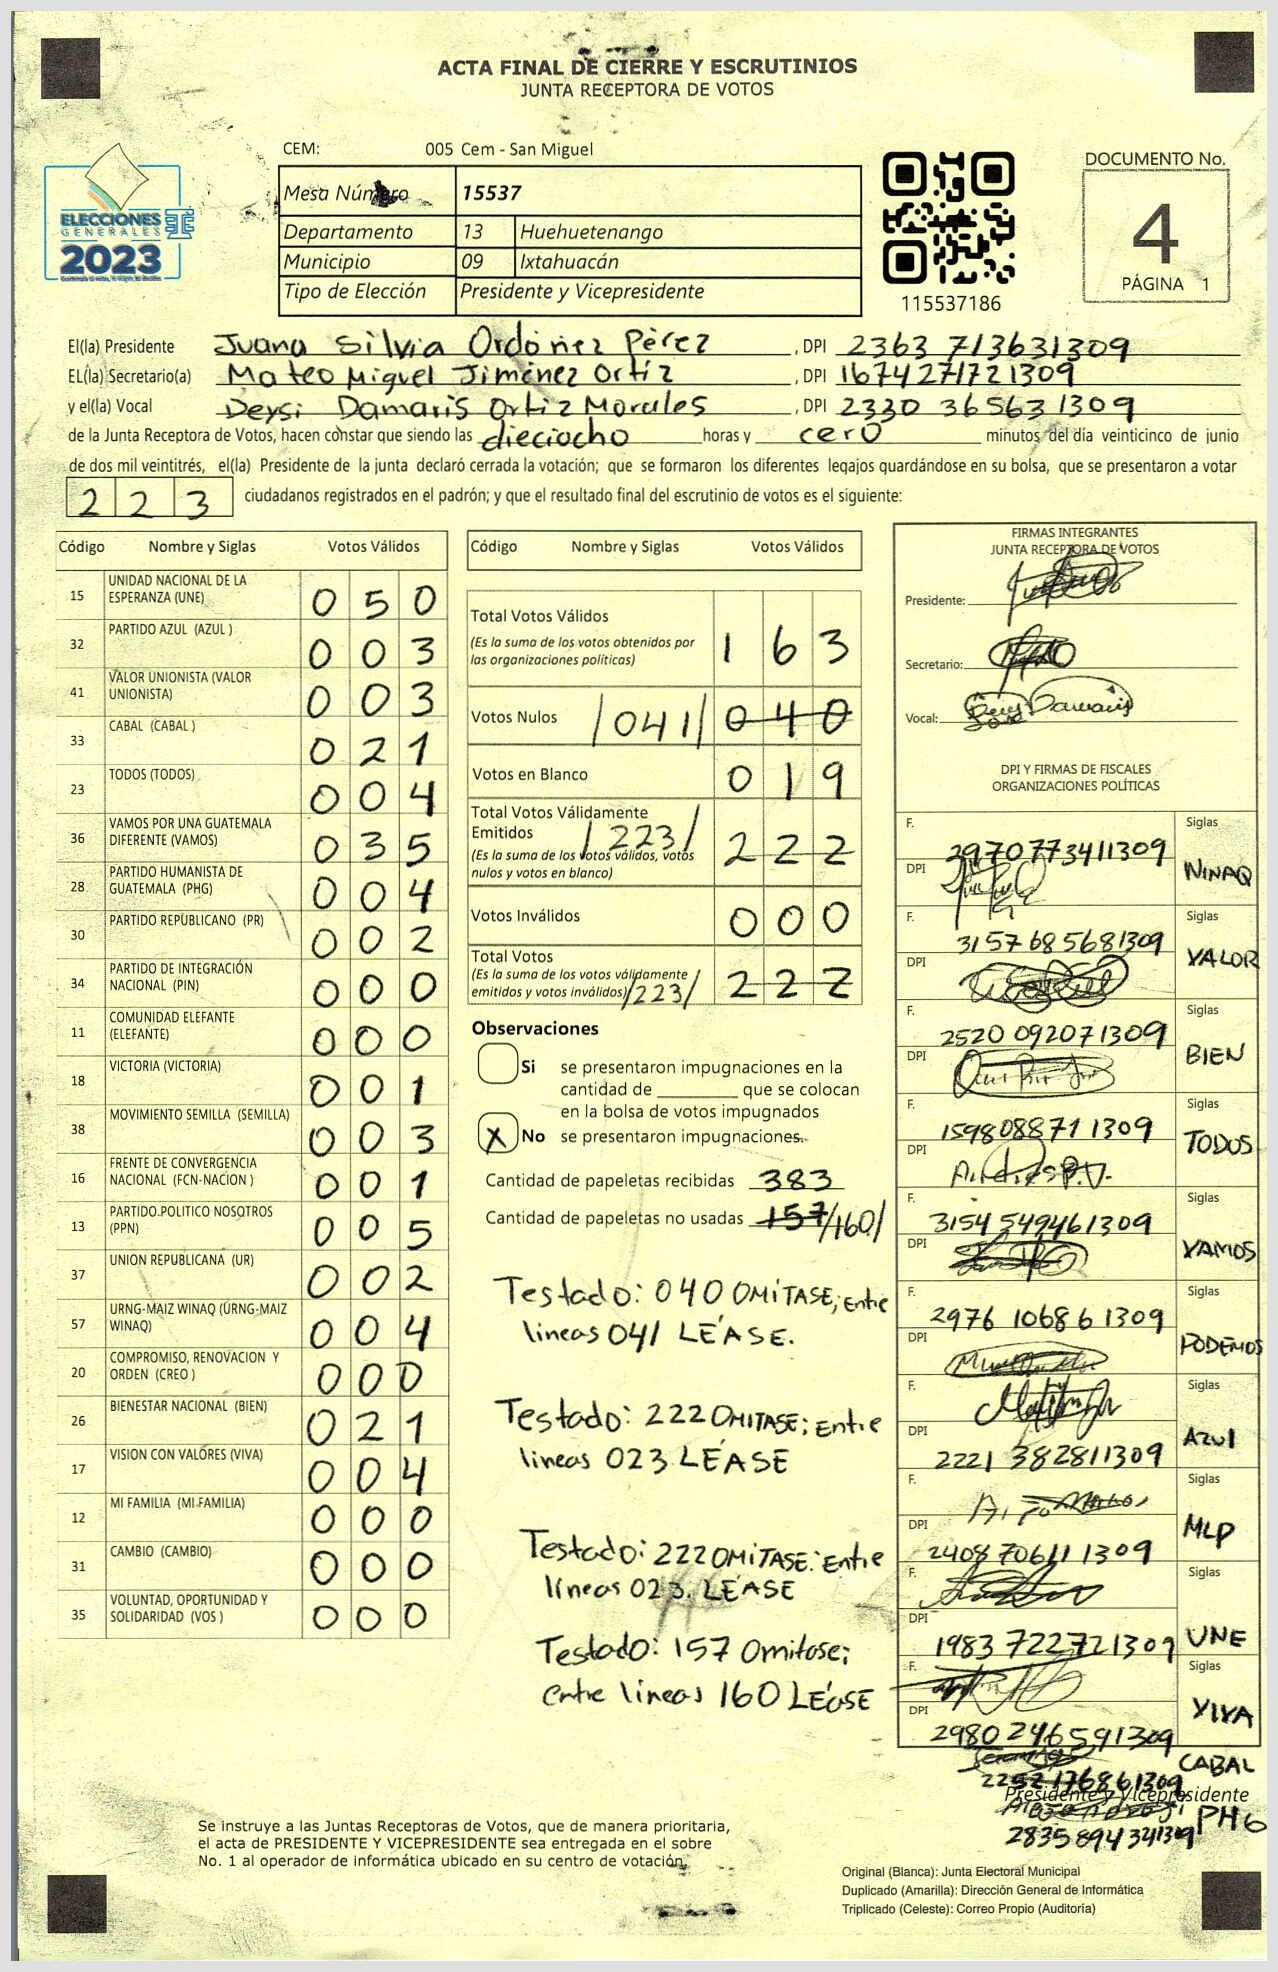 ACTA FINAL DE CIERRE Y ESCRUTINIOS
JUNTA RECEPTORA DE VOTOS
CEM: 005 Cem - San Miguel
Mesa Número 15537
Departamento 13 Huehuetenango
Municipio 09 Ixtahuacán
Tipo de Elección Presidente y Vicepresidente
ELECCIONES
GENERALES
2023
115537186
DOCUMENTO No.
4
PÁGINA 1
El(la) Presidente Juana Silvia Ordóñez Pérez , DPI 2363 713631309
EL(la) Secretario(a) Mateo Miguel Jiménez Ortíz , DPI 1674271721309
y el(la) Vocal Deysi Damaris Ortiz Morales , DPI 2330 365631309
de la Junta Receptora de Votos, hacen constar que siendo las dieciocho horas y cero minutos del día veinticinco de junio
de dos mil veintitrés, el(la) Presidente de la junta declaró cerrada la votación; que se formaron los diferentes legajos guardándose en su bolsa, que se presentaron a votar
223 ciudadanos registrados en el padrón; y que el resultado final del escrutinio de votos es el siguiente:
Código Nombre y Siglas Votos Válidos
15 UNIDAD NACIONAL DE LA ESPERANZA (UNE) 050
32 PARTIDO AZUL (AZUL ) 003
41 VALOR UNIONISTA (VALOR UNIONISTA) 003
33 CABAL (CABAL ) 021
23 TODOS (TODOS) 004
36 VAMOS POR UNA GUATEMALA DIFERENTE (VAMOS) 035
28 PARTIDO HUMANISTA DE GUATEMALA (PHG) 004
30 PARTIDO REPUBLICANO (PR) 002
34 PARTIDO DE INTEGRACIÓN NACIONAL (PIN) 000
11 COMUNIDAD ELEFANTE (ELEFANTE) 000
18 VICTORIA (VICTORIA) 001
38 MOVIMIENTO SEMILLA (SEMILLA) 003
16 FRENTE DE CONVERGENCIA NACIONAL (FCN-NACION ) 001
13 PARTIDO POLITICO NOSOTROS (PPN) 005
37 UNION REPUBLICANA (UR) 002
57 URNG-MAIZ WINAQ (URNG-MAIZ WINAQ) 004
20 COMPROMISO, RENOVACION Y ORDEN (CREO ) 000
26 BIENESTAR NACIONAL (BIEN) 021
17 VISION CON VALORES (VIVA) 004
12 MI FAMILIA (MI FAMILIA) 000
31 CAMBIO (CAMBIO) 000
35 VOLUNTAD, OPORTUNIDAD Y SOLIDARIDAD (VOS ) 000
Código Nombre y Siglas Votos Válidos
Total Votos Válidos 163
(Es la suma de los votos obtenidos por
las organizaciones políticas)
Votos Nulos /041/ 040
Votos en Blanco 019
Total Votos Válidamente
Emitidos /223/ 222
(Es la suma de los votos válidos, votos
nulos y votos en blanco)
Votos Inválidos 000
Total Votos
(Es la suma de los votos válidamente
emitidos y votos inválidos) /223/ 222
Observaciones
Si se presentaron impugnaciones en la
cantidad de ________ que se colocan
en la bolsa de votos impugnados
X No se presentaron impugnaciones.
Cantidad de papeletas recibidas 383
Cantidad de papeletas no usadas 157 /160/
Testado: 040 OMÍTASE; Entre
líneas 041 LÉASE.
Testado: 222 OMITASE; Entre
líneas 023 LÉASE
Testado: 222 OMITASE: Entre
líneas 023. LÉASE
Testado: 157 Omitase;
entre líneas 160 LÉASE
FIRMAS INTEGRANTES
JUNTA RECEPTORA DE VOTOS
Presidente:
Secretario:
Vocal:
DPI Y FIRMAS DE FISCALES
ORGANIZACIONES POLÍTICAS
F. Siglas
2970773411309
DPI WINAQ
F. Siglas
3157685681309
DPI VALOR
F. Siglas
2520 092071309
DPI BIEN
F. Siglas
1598088711309
DPI TODOS
F. Siglas
3154 549461309
DPI VAMOS
F. Siglas
2976 106861309
DPI PODEMOS
F. Siglas
DPI 2221 382811309 Azul
F. Siglas
DPI 2408706111309 MLP
F. Siglas
DPI 1983 722721309 UNE
F. Siglas
DPI 2980246591309 VIVA
CABAL
2252176861309
Presidente y Vicepresidente
PHG
2835894341309
Se instruye a las Juntas Receptoras de Votos, que de manera prioritaria,
el acta de PRESIDENTE Y VICEPRESIDENTE sea entregada en el sobre
No. 1 al operador de informática ubicado en su centro de votación.
Original (Blanca): Junta Electoral Municipal
Duplicado (Amarilla): Dirección General de Informática
Triplicado (Celeste): Correo Propio (Auditoría)